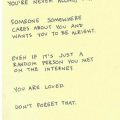 YOU'RE NEVER ALONE,
SOMEONE SOMEWHERE
CARES ABOUT YOU AND
WANTS YOU TO BE ALRIGHT.
EVEN IF IT'S JUST A
RANDOM PERSON YOU MET
ON THE INTERNET
YOU ARE LOVED.
DON'T FORGET THAT.